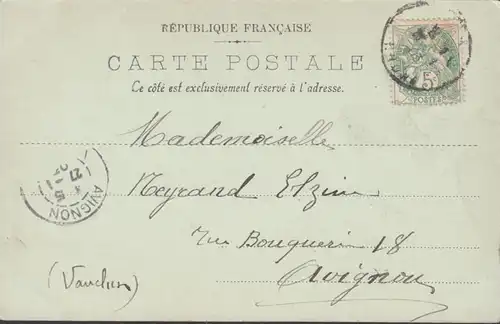 RÉPUBLIQUE FRANÇAISE
CARTE POSTALE
Ce côté est exclusivement réservé à l'adresse.
5c
POSTES
Mademoiselle
Meyrand Elzire
AVIGNON
rue Bouquerie 18
Avignon
(Vaucluse)